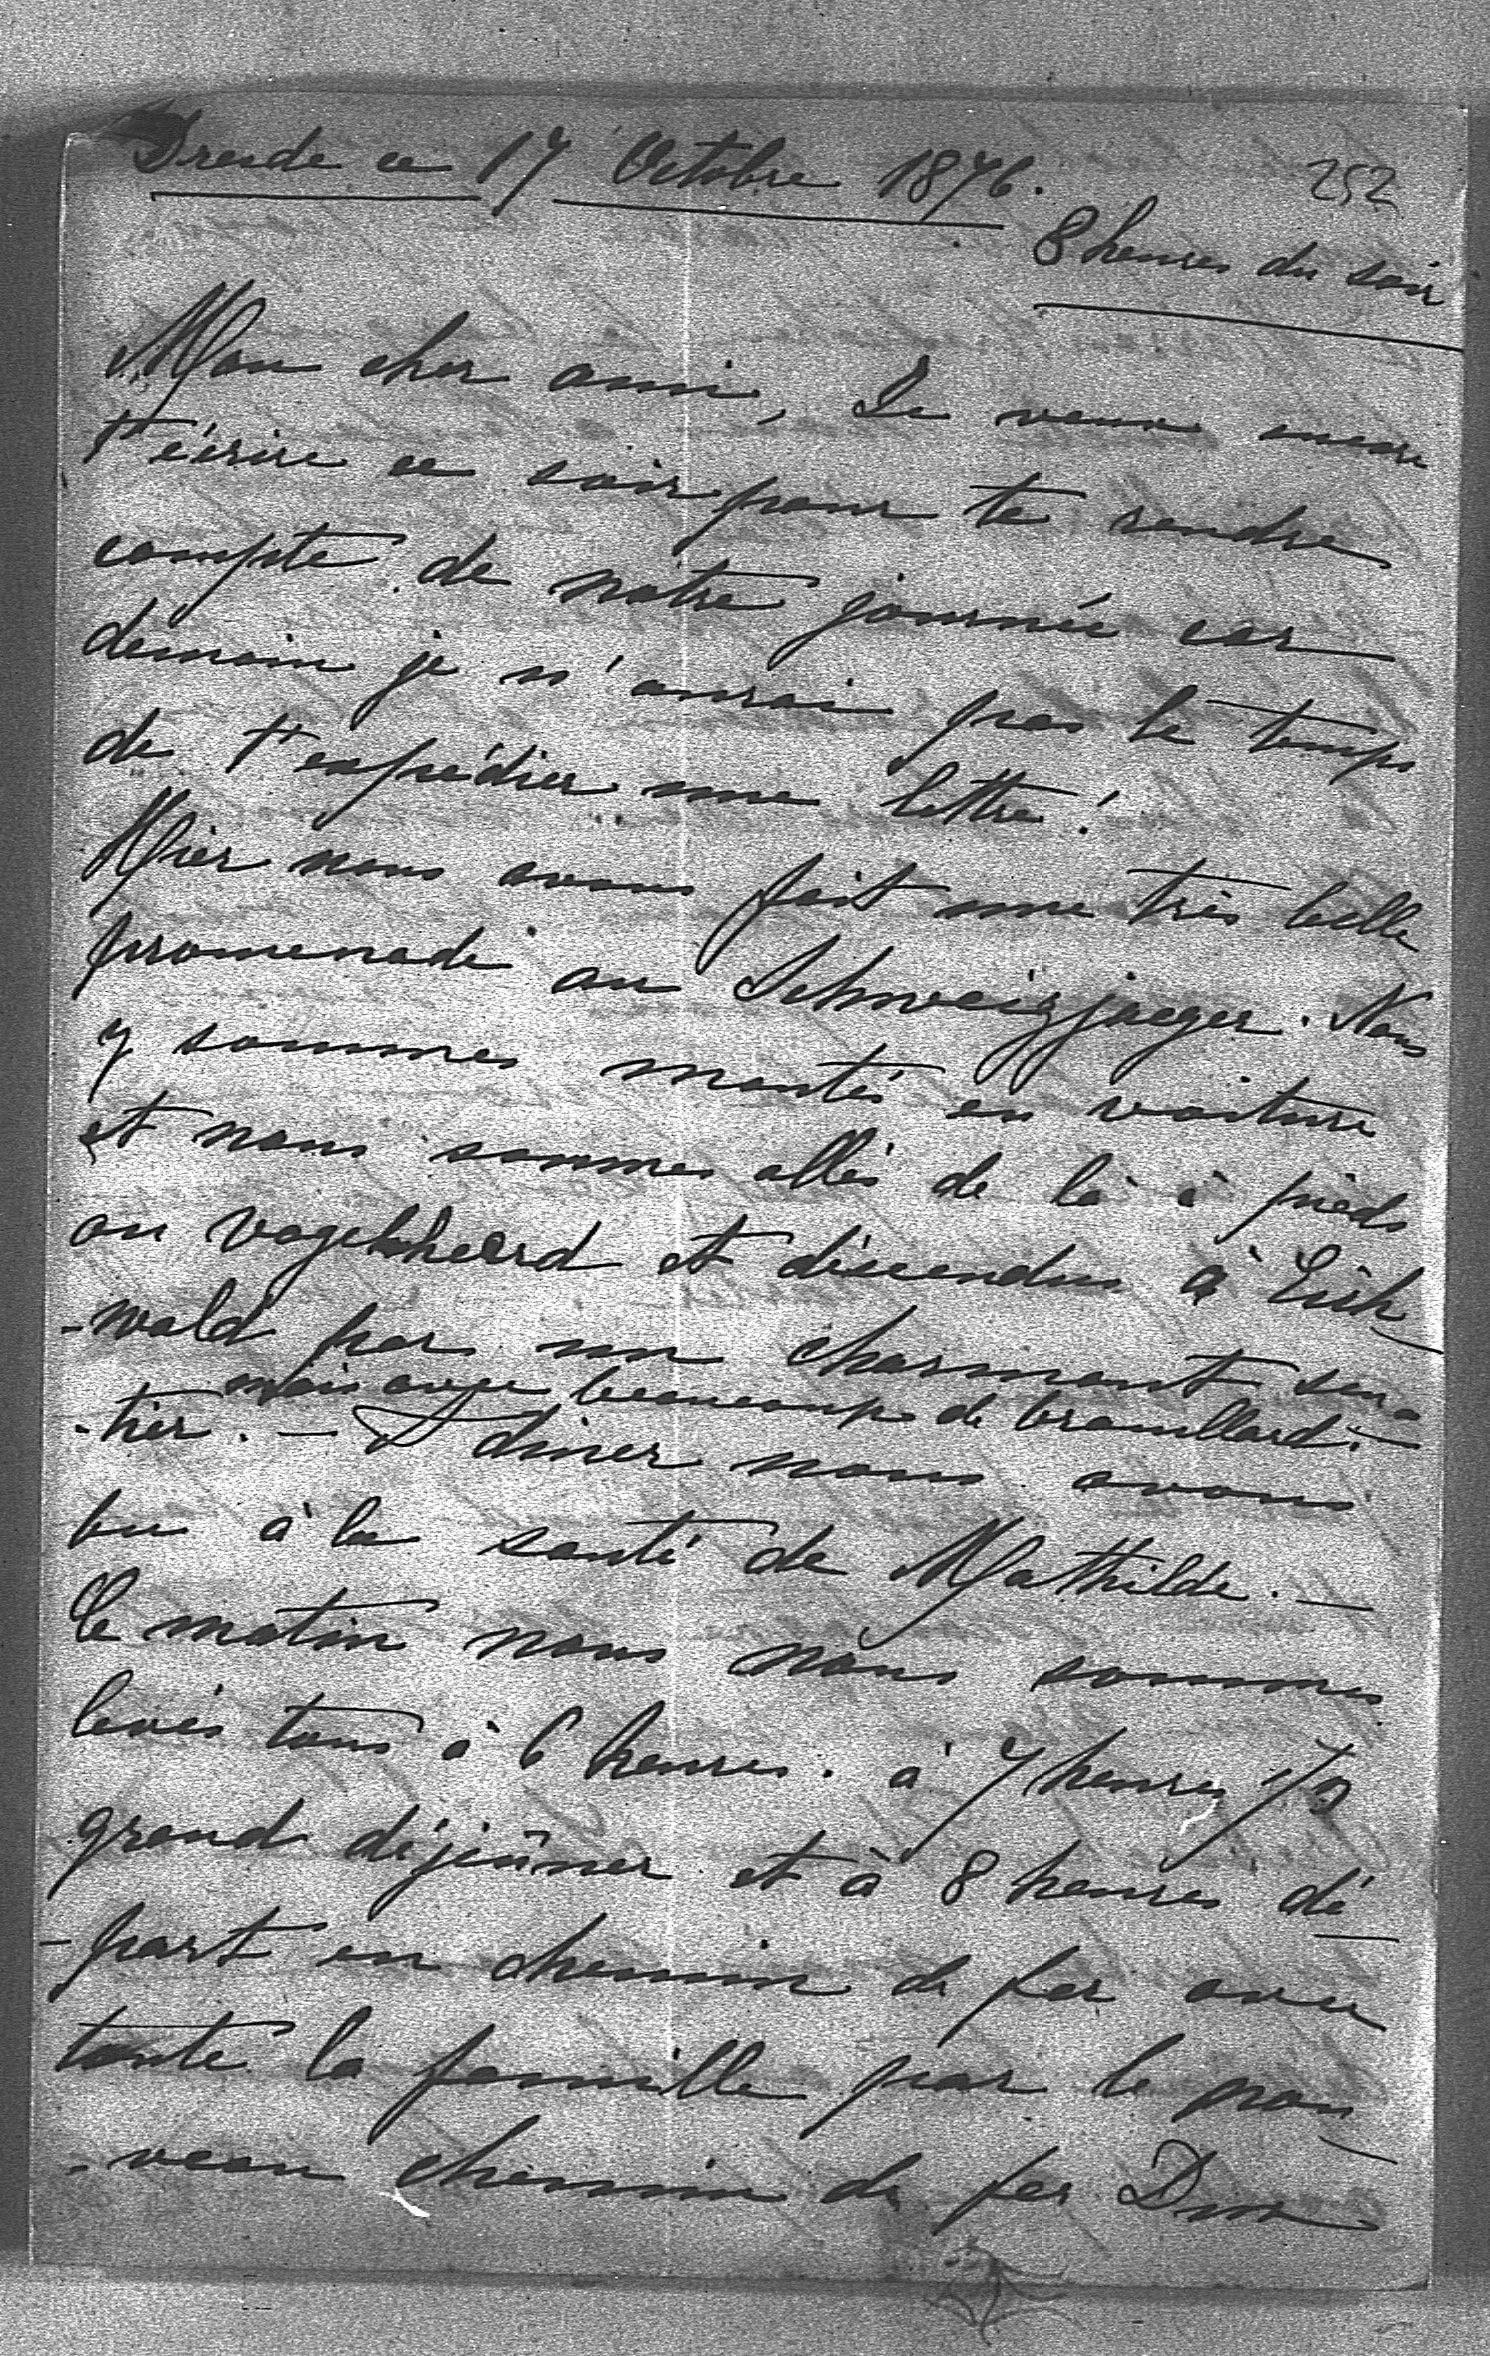 Dresde ce 17 Octobre 1876.
252
8 heures du soir
Mon cher ami, Je veux encore
t'écrire ce soir pour te rendre
compte de notre journée car
demain je n'aurai pas le temps
de t'expédier une lettre!
Hier nous avons fait une très belle
promenade au Schweizjaeger. Nous
y sommes montés en voiture
et nous sommes allés de là à pieds
au vogelsheerd et descendus à Eich-
-wald par un charmant sen-
mais avec beaucoup de brouillard.-
-tier. — A diner nous avons
bu à la santé de Mathilde. —
Ce matin nous nous sommes
levés tous à 6 heures. à 7 heures 1/2
grand déjeûner et à 8 heures dé-
-part en chemin de fer avec
toute la famille par le nou-
-veau chemin de fer Dux